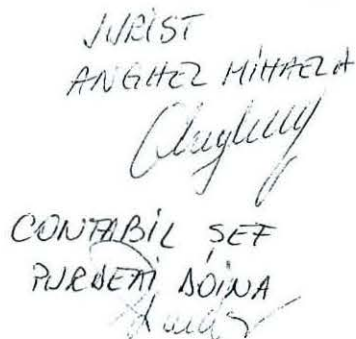 JURIST
ANGHEL MIHAELA
CONTABIL ȘEF
DOINA